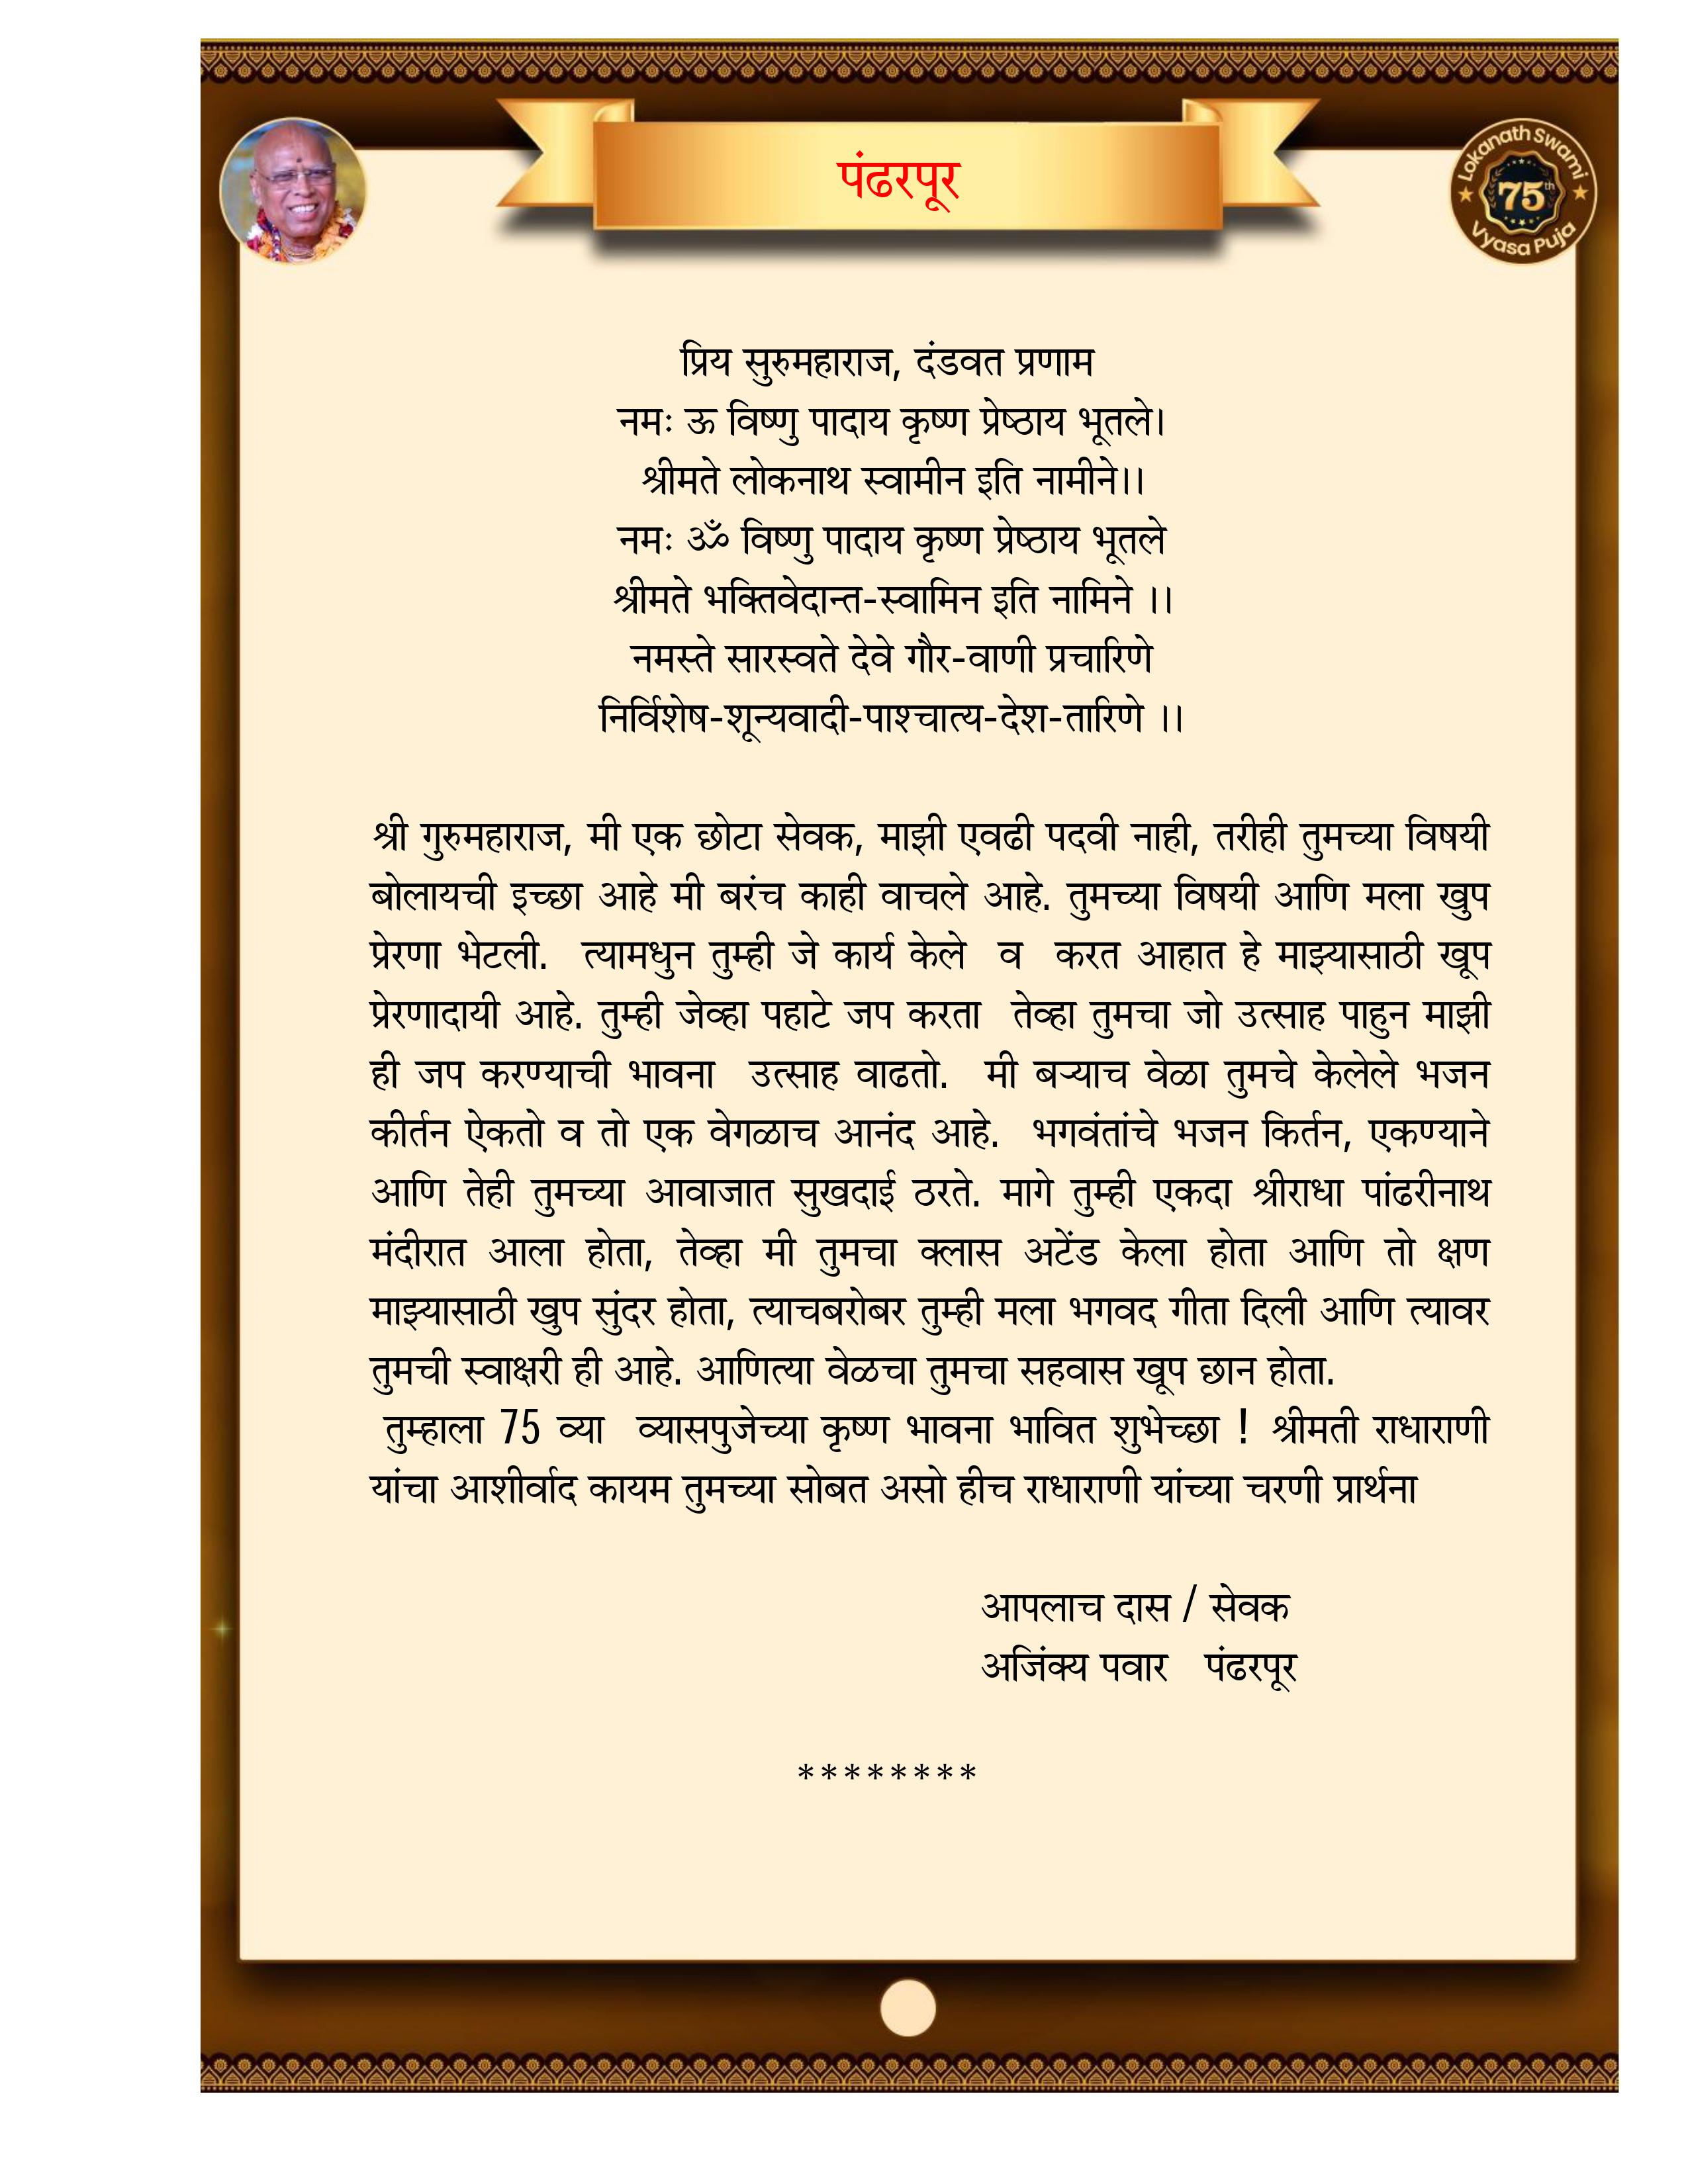 पंढरपूर
Lokanath Swami
75th
Vyasa Puja
प्रिय सुरुमहाराज, दंडवत प्रणाम
नमः ऊ विष्णु पादाय कृष्ण प्रेष्ठाय भूतले।
श्रीमते लोकनाथ स्वामीन इति नामीने।।
नमः ॐ विष्णु पादाय कृष्ण प्रेष्ठाय भूतले
श्रीमते भक्तिवेदान्त-स्वामिन इति नामिने ।।
नमस्ते सारस्वते देवे गौर-वाणी प्रचारिणे
निर्विशेष-शून्यवादी-पाश्चात्य-देश-तारिणे ।।
श्री गुरुमहाराज, मी एक छोटा सेवक, माझी एवढी पदवी नाही, तरीही तुमच्या विषयी
बोलायची इच्छा आहे मी बरंच काही वाचले आहे. तुमच्या विषयी आणि मला खुप
प्रेरणा भेटली. त्यामधुन तुम्ही जे कार्य केले व करत आहात हे माझ्यासाठी खूप
प्रेरणादायी आहे. तुम्ही जेव्हा पहाटे जप करता तेव्हा तुमचा जो उत्साह पाहुन माझी
ही जप करण्याची भावना उत्साह वाढतो. मी बऱ्याच वेळा तुमचे केलेले भजन
कीर्तन ऐकतो व तो एक वेगळाच आनंद आहे. भगवंतांचे भजन किर्तन, एकण्याने
आणि तेही तुमच्या आवाजात सुखदाई ठरते. मागे तुम्ही एकदा श्रीराधा पांढरीनाथ
मंदीरात आला होता, तेव्हा मी तुमचा क्लास अटेंड केला होता आणि तो क्षण
माझ्यासाठी खुप सुंदर होता, त्याचबरोबर तुम्ही मला भगवद गीता दिली आणि त्यावर
तुमची स्वाक्षरी ही आहे. आणित्या वेळचा तुमचा सहवास खूप छान होता.
तुम्हाला 75 व्या व्यासपुजेच्या कृष्ण भावना भावित शुभेच्छा ! श्रीमती राधाराणी
यांचा आशीर्वाद कायम तुमच्या सोबत असो हीच राधाराणी यांच्या चरणी प्रार्थना
आपलाच दास / सेवक
अजिंक्य पवार पंढरपूर
********